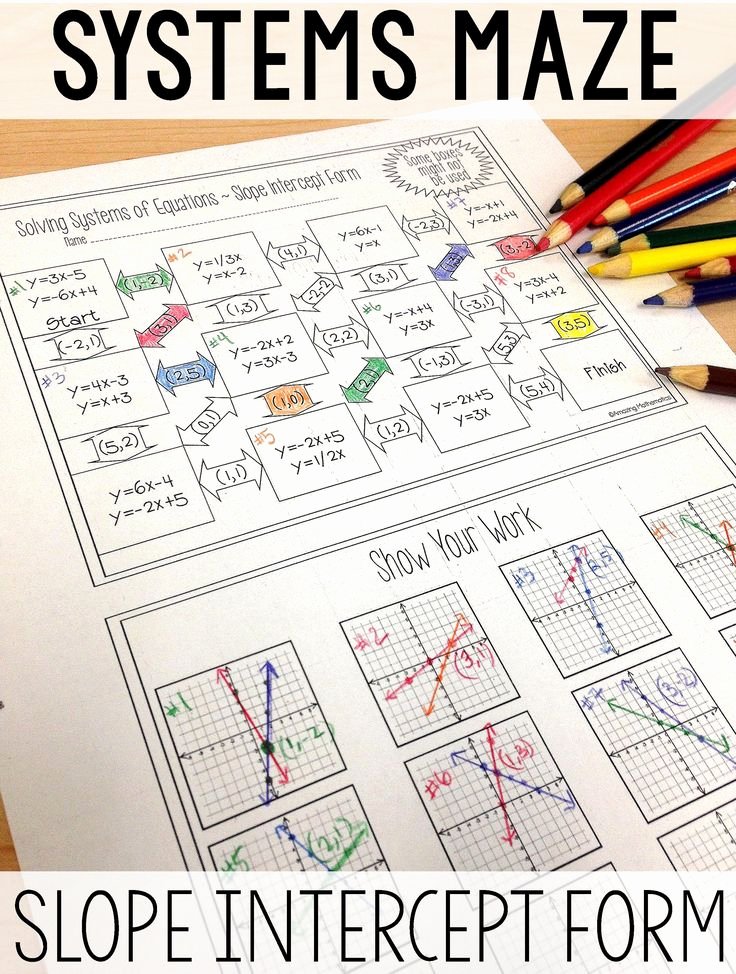 SYSTEMS MAZE
Solving Systems of Equations ~ Slope Intercept Form
Name
Some boxes
might not
be used
#1 y=3x-5
y=-6x+4
Start
(1,-2)
#2
y=1/3x
y=x-2
(4,1)
y=6x-1
y=x
(-2,3)
#7
y=-x+1
y=-2x+4
(-2,1)
(3,1)
(1,3)
(-2,-2)
(3,1)
(1,3)
(3,-2)
#3
y=4x-3
y=x+3
(2,5)
#4
y=-2x+2
y=3x-3
(2,2)
#6
y=-x+4
y=3x
(-3,1)
#8
y=3x-4
y=x+2
(5,2)
(0,1)
(1,0)
(2,1)
(-1,3)
(5,3)
(3,5)
y=6x-4
y=-2x+5
(1,1)
#5
y=-2x+5
y=1/2x
(1,2)
y=-2x+5
y=3x
(5,4)
Finish
©Amazing Mathematics!
Show Your Work
#1
(1,-2)
#2
(3,1)
#3
(2,5)
#4
#5
(2,1)
#6
(1,3)
#7
(3,-2)
SLOPE INTERCEPT FORM